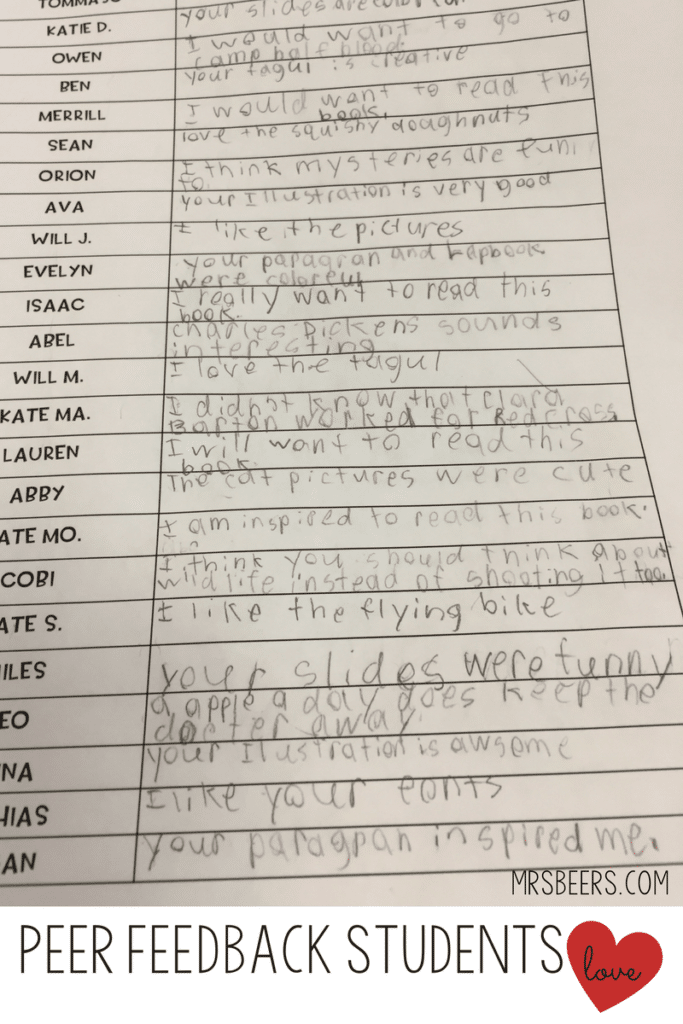 TOMMA
your slides are color
KATIE D.
I would want to go to
camp half blood.
OWEN
your tagul is creative
BEN
I would want to read this
book.
MERRILL
love the squishy doughnuts
SEAN
I think mysteries are fun
to.
ORION
your Illustration is very good
AVA
I like the pictures
WILL J.
your paragran and lapbook
were coloreul
EVELYN
I really want to read this
book.
ISAAC
charles Dickens sounds
interesting
ABEL
I love the tagul
WILL M.
I didn't know that clara
Barton worked for Red cross
KATE MA.
I will want to read this
book.
LAUREN
The cat pictures were cute
ABBY
I am inspired to read this book.
ATE MO.
I think you should think about
wildlife instead of shooting it too.
COBI
I like the flying bike
ATE S.
your slides were funny
ILES
a apple a day does keep the
docter away.
EO
your Illustration is awsome
NA
I like your fonts
HIAS
your paragpan inspired me.
AN
MRSBEERS.COM
PEER FEEDBACK STUDENTS love